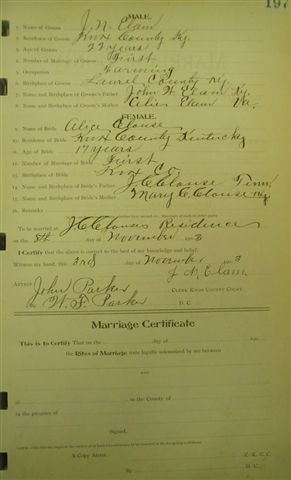 197
MALE.
1. Name of Groom J. N. Elam
2. Residence of Groom Knox County Ky.
3. Age of Groom 22 years
4. Number of Marriage of Groom First
5. Occupation Farming
6. Birthplace of Groom Laurel County Ky.
7. Name and Birthplace of Groom's Father John H. Elam Ky.
8. Name and Birthplace of Groom's Mother Elam Va.
FEMALE.
9. Name of Bride Alice Clouse
10. Residence of Bride Knox County Kentucky
11. Age of Bride 17 years
12. Number of Marriage of Bride First
13. Birthplace of Bride Knox Co.
14. Name and Birthplace of Bride's Father J. C. Clouse Tenn
15. Name and Birthplace of Bride's Mother Mary C. Clouse Ky.
16. Remarks
To be married at J C Clouses Residence
on the 8th day of November 1903
I Certify that the above is correct to the best of my knowledge and belief.
Witness my hand, this 3rd day of November 1903
J. N. Elam
Attest
John Parker
CLERK KNOX COUNTY COURT
W. F. Parker D. C.
Marriage Certificate
This is to Certify That on the day of 190
the Rites of Marriage were legally solemnized by me between
and
at in the County of
in the presence of
Signed,
A Copy Attest K. C. C.
By D. C.